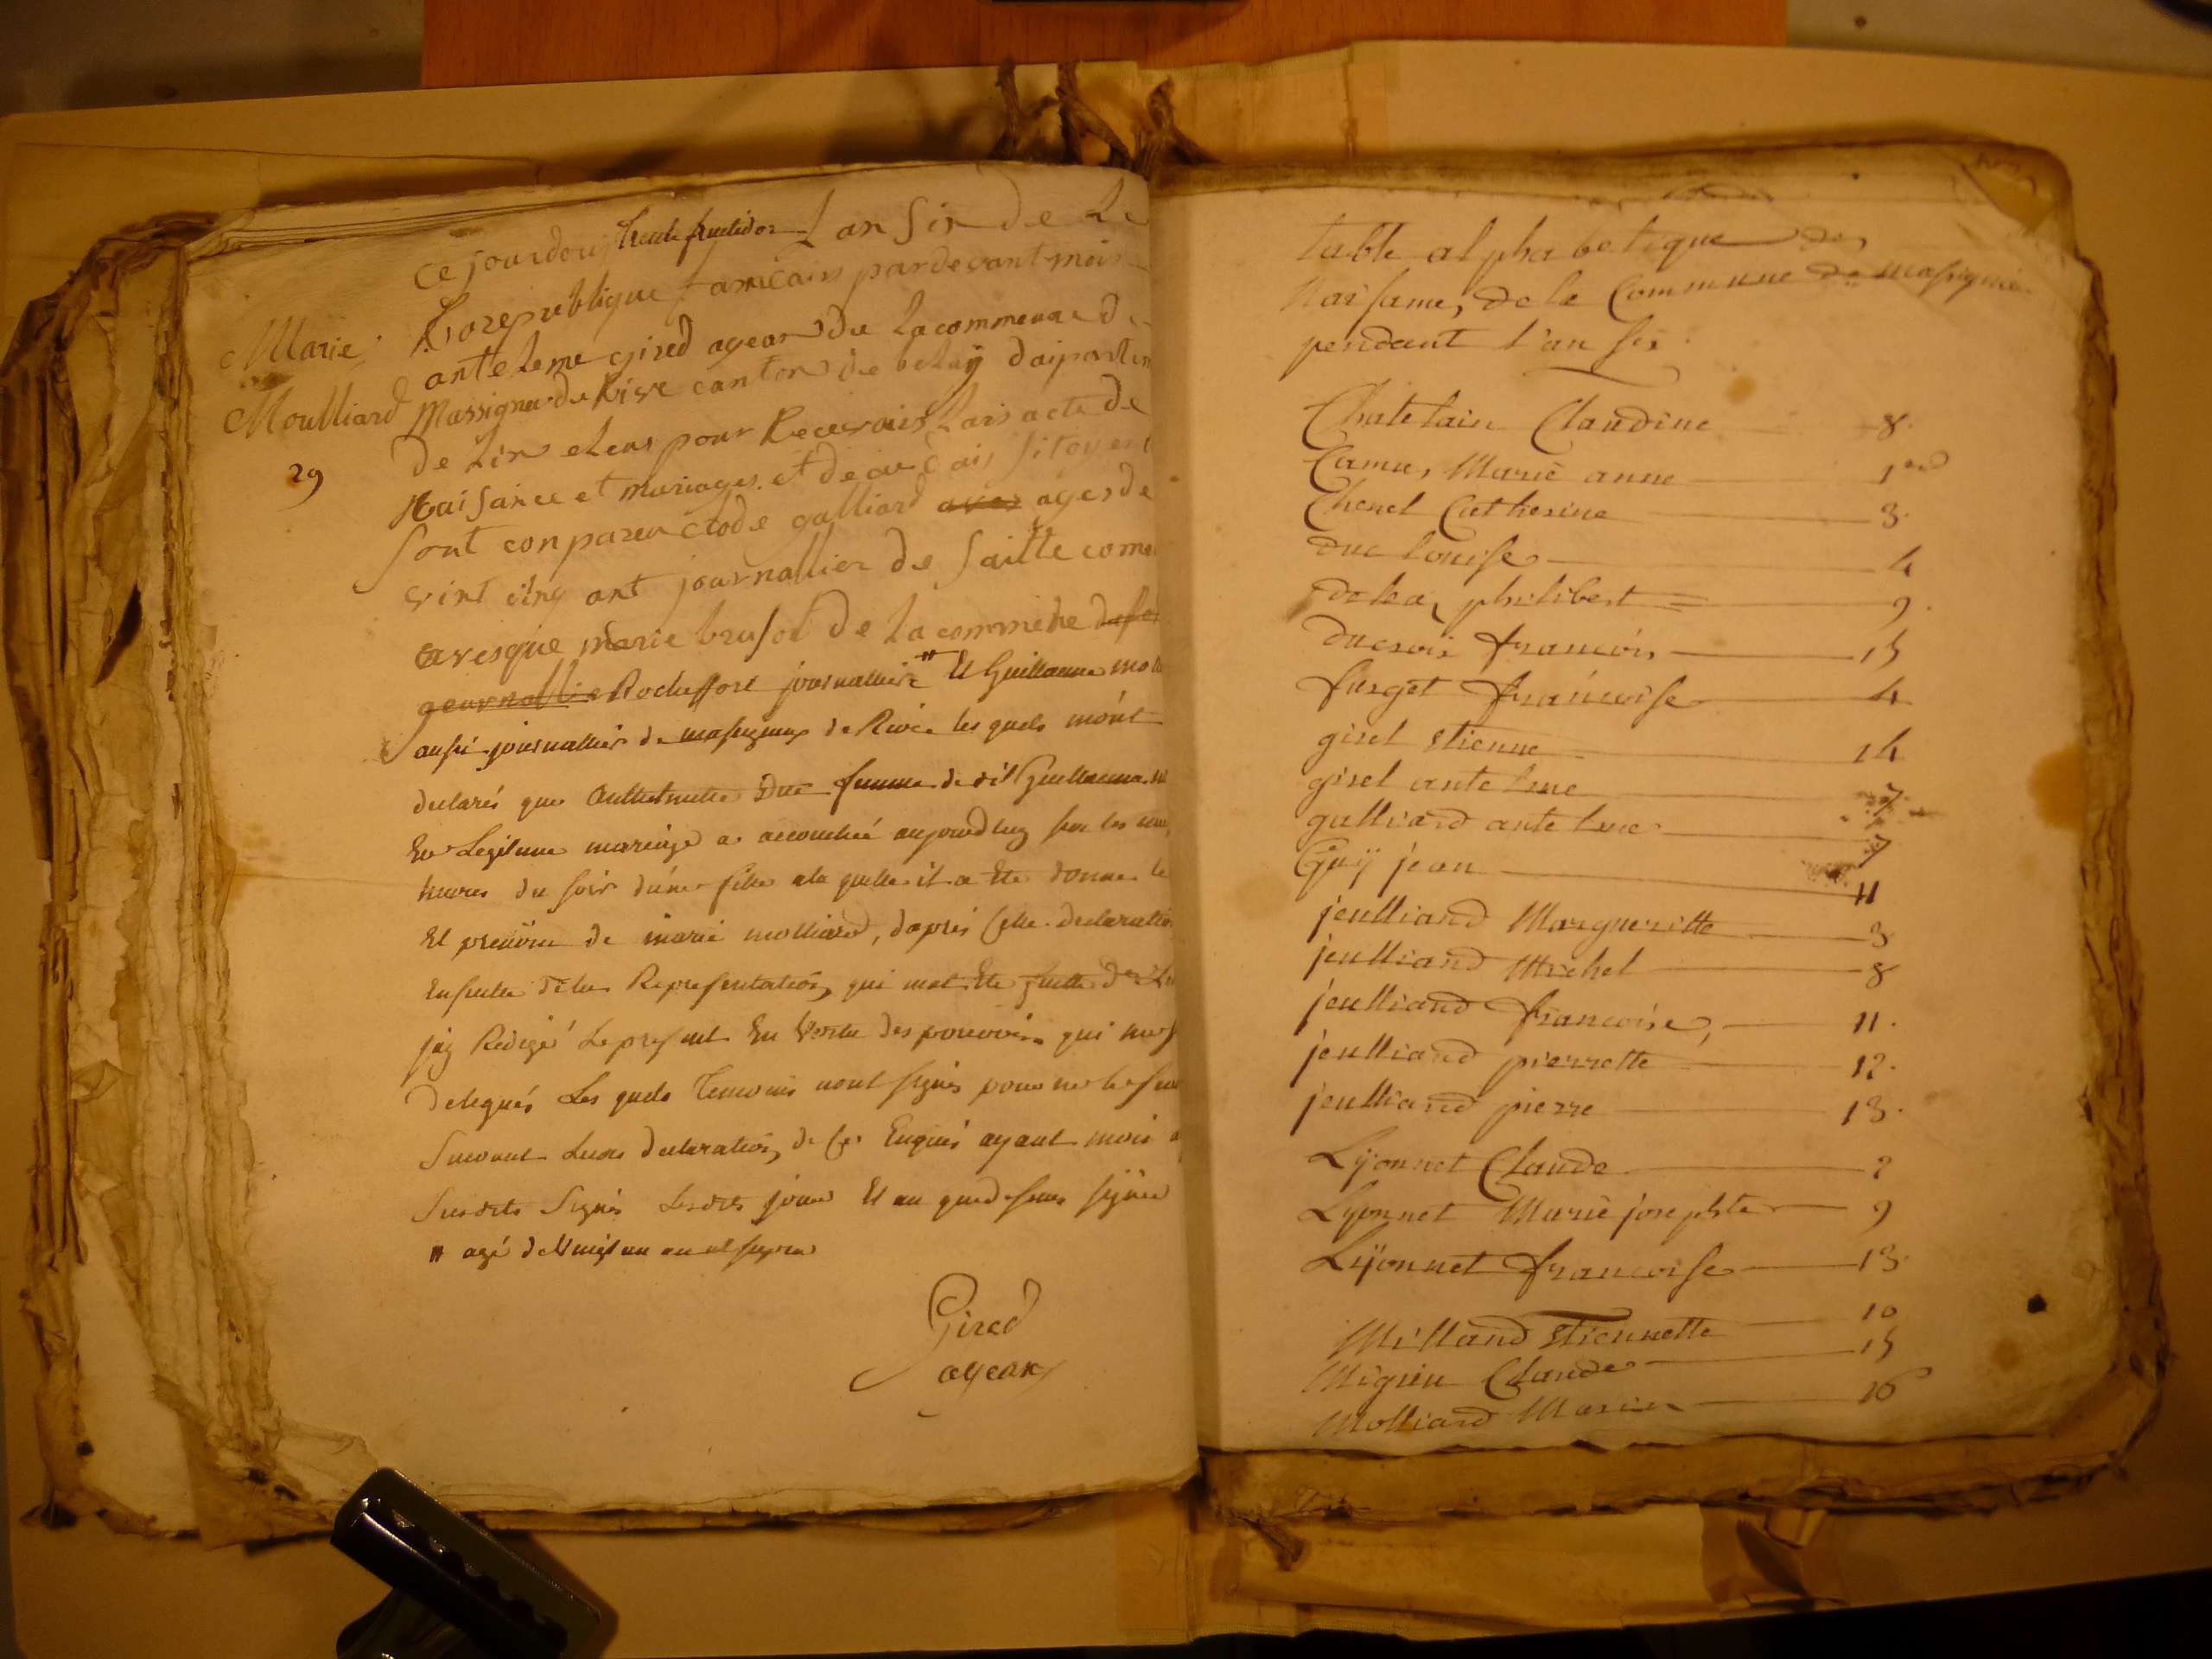 Marie
Moulliard
29
ce jourdouy trente fructidor L an Six de La
Rorepeublique franćais pardevant moi
anteleme gired agean de La commeune de
Massignu de Rive canton de beLaÿ daiparte
de Lin eLeus pour Recevoir Lais acte de
Naisance et mariages et de ces Sitoyen
Sont conpareu clode galliard ages de
vint cinq ant journallier de Saitte come
avesque marie brusot de La commeune
Rocheffort journalliere # Et Guillaume mol
aussi journallier de massignieux de Rive les quels m'ont
declarés que Duc femme de dit Guillaume
En Legitime mariage a accouchée aujourdhuy
heures du soir d'une fille a la quelle il a Ete donné le
Et prenôm de marie molliard, dapres cette declaration
Ensuitte de la Representation, qui mat Ete faitte de
jay Redigé Le present En Vertu des pouvoirs qui me
Delegués Les quels Temoins nont signés pour ne le
Suivant Leurs declaration, de ce Enquis ayant moi
Susdits Signés Lesdits jour Et an que dessus
# agé de Vingt un an ut supra
Gired
agean
table alphabetique des
Naissame, de la Commune de massignieu
pendant l'an six
Chatelain Claudine 8.
Camu, Marie anne 1er
Chenel Catherine 3.
duc Louise 4
philibert 9.
ducroix francois 15
furget francoise 4
girel Etienne 14
girel antelme 7
galliard antelme 7
Guÿ jean 11
jeulliand Margueritte 3
jeulliand Michel 8
jeulliand francoise, 11.
jeulliand pierrette 12.
jeulliand pierre 13.
Lÿonnet Claude 2
Lyonnet Marie josephte 9
Lÿonnet francoise 13.
Milland Etiennette 10
Miguin Claude 15
Molliard Marie 16